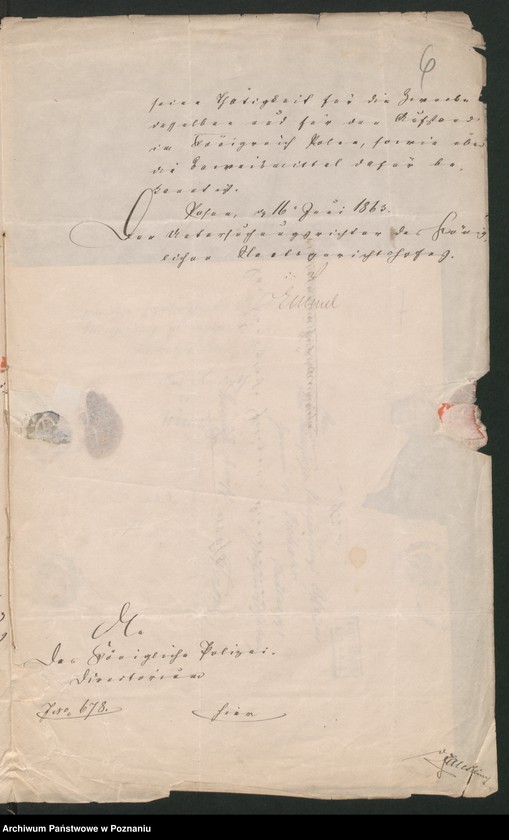 6
seine Thätigkeit für die Zwecke
desselben und für den Aufstand
im Königreich Polen, sowie über
die Beweismittel dafür be-
Posen, d 16 Juni 1863.
Der Untersuchungsrichter des König
lichen Staatsgerichtshofes.
An
Das Königliche Polizei-
Directorium
No. 678. hier
Archiwum Państwowe w Poznaniu